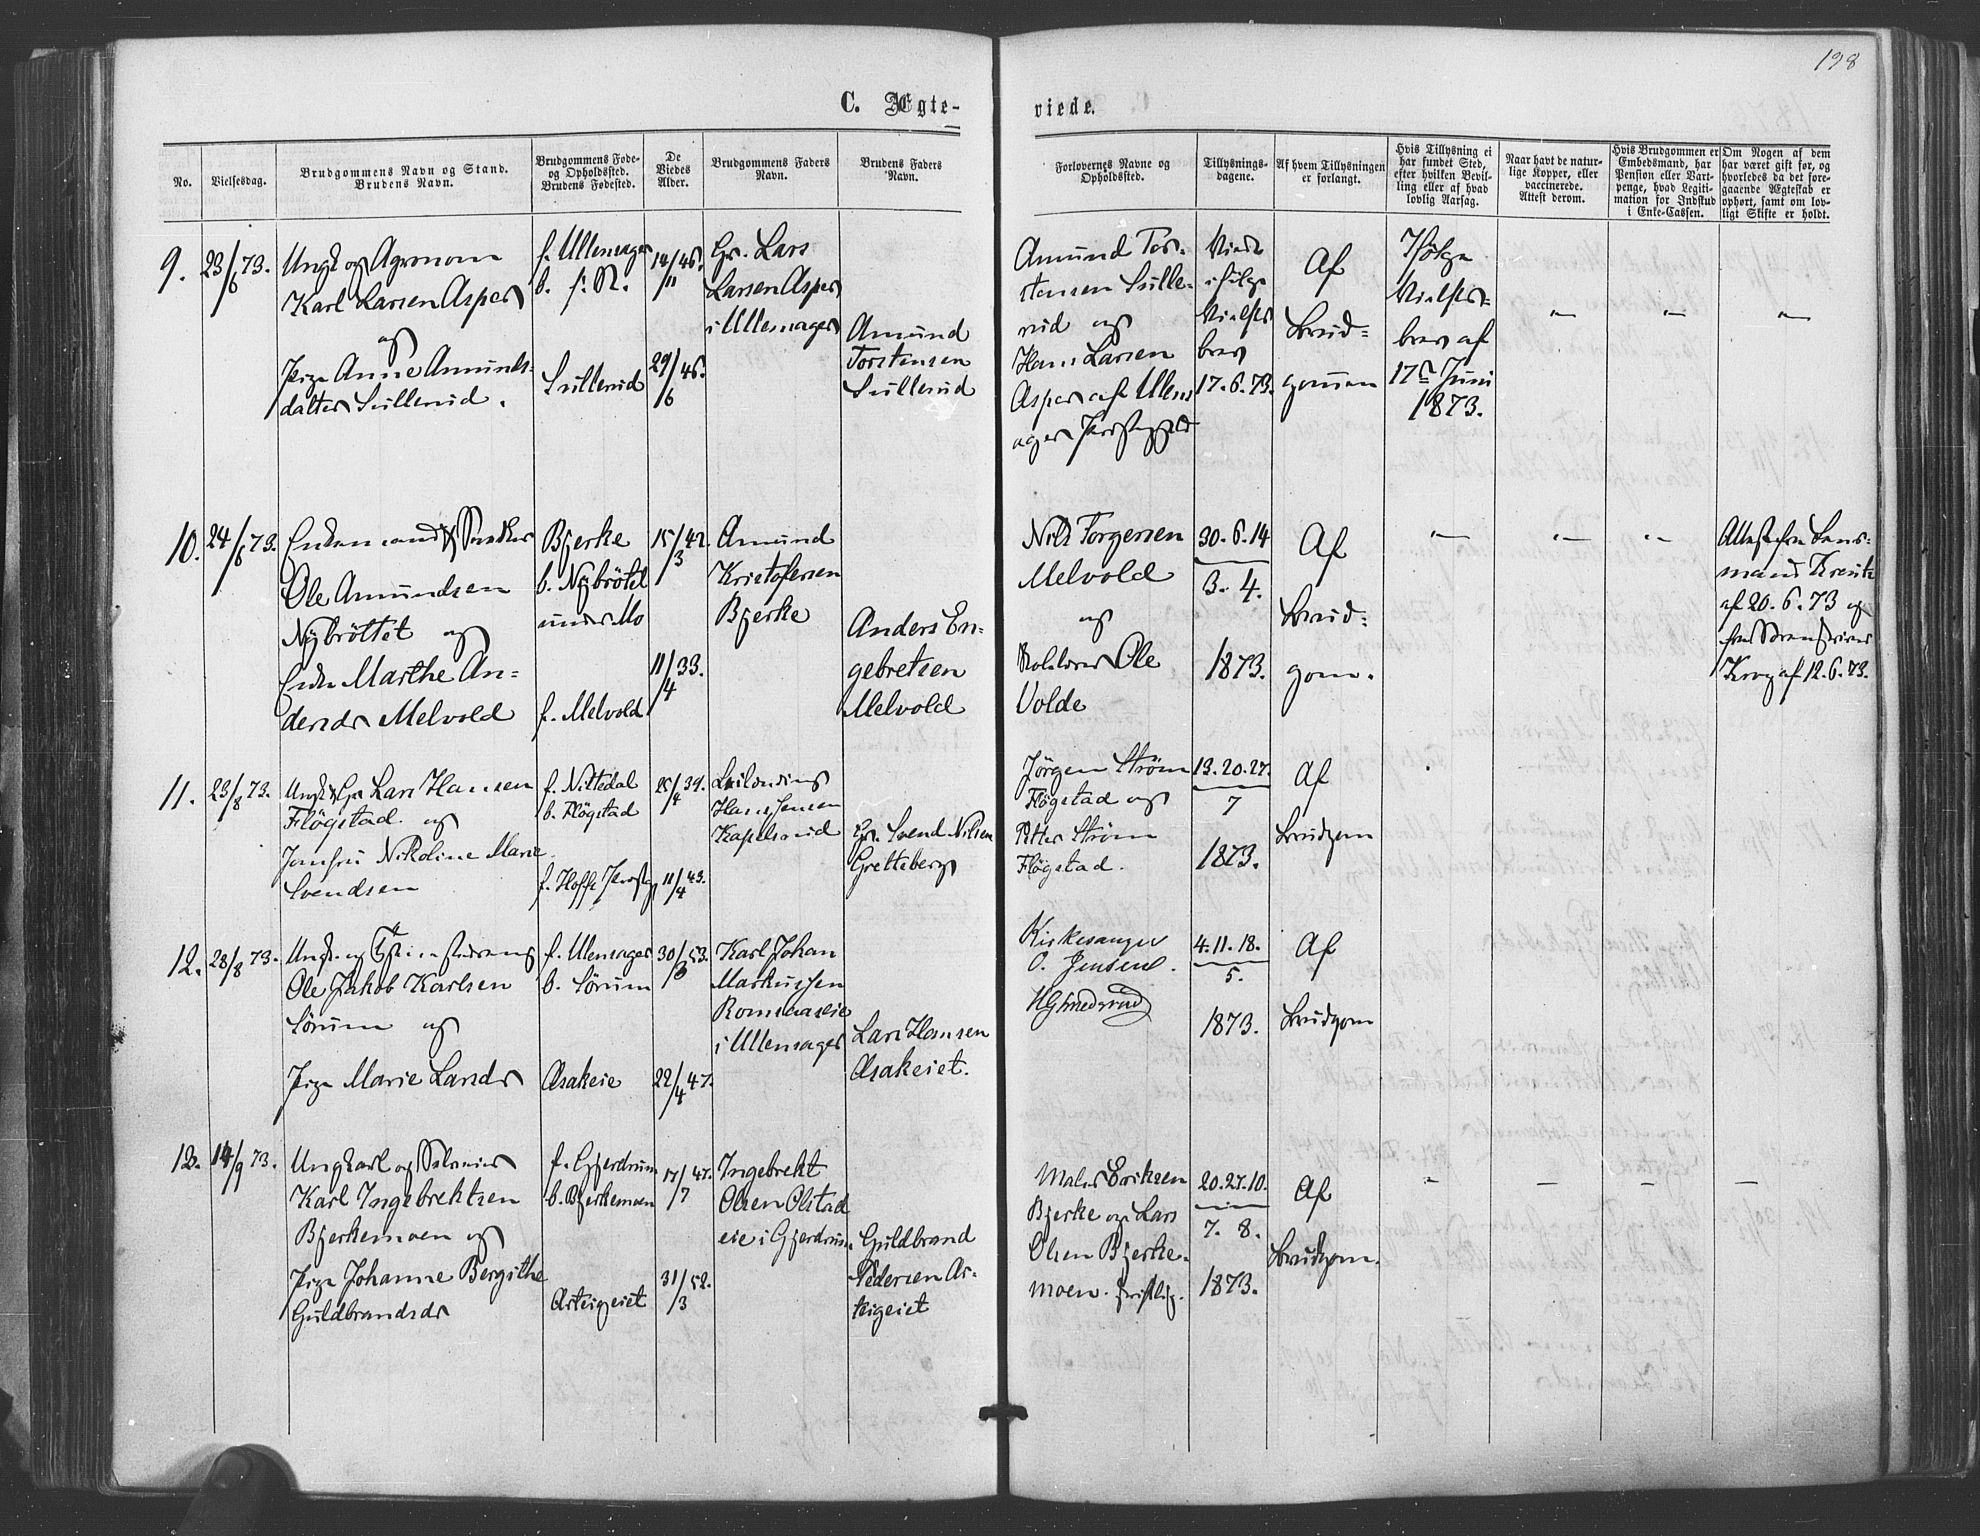 198
C. Ægte-
viede.
No.
Vielsesdag.
Brudgommens Navn og Stand.
Brudens Navn.
Brudgommens Føde-
og Opholdssted.
Brudens Fødested.
De
Viedes
Alder.
Brudgommens Faders
Navn.
Brudens Faders
Navn.
Forlovernes Navne og
Opholdssted.
Tillysnings-
dagene.
Af hvem Tillysningen
er forlangt.
Hvis Tillysning ei
har fundet Sted,
efter hvilken Bevil-
ling eller af hvad
lovlig Aarsag.
Naar havt de natur-
lige Kopper, eller
vaccinerede.
Attest derom.
Hvis Brudgommen er
Embedsmand, har
Pension eller Vart-
penge, hvad Legiti-
mation for Indskud
i Enke-Cassen.
Om Nogen af dem
har været gift før, og
hvorledes da det fore-
gaaende Ægteskab er
ophørt, samt om lov-
ligt Skifte er holdt.
9.
23/6 73.
Ungk og Agronom
Karl Larsen Asper
og
Pige Anne Amunds-
datter Sullerud.
f. Ullensager
b. f: N.
Sullerud
14/11 46.
29/6 46.
Gr. Lars
Larsen Asper
i Ullensager
Amund
Torstensen
Sullerud
Amund Tor-
stensen Sulle-
rud og
Hans Larsen
Asper af Ullens
ager
Viede
ifølge
Vielses
brev
17.6.73.
Af
Brud=
gommen
Ifølge
Vielses-
brev af
17de Juni
1873.
10.
24/6 73.
Enkemand
Ole Amundsen
Nybröttet og
Enke Marthe An-
dersdr Melvold
Bjerke
b. Nybrötet
under Mo
f. Melvold
15/3 42.
11/4 33.
Amund
Kristofersen
Bjerke
Anders En-
gebretsen
Melvold
Nils Torgersen
Melvold
og
Ole
Volde
30.6.14
3. 4.
1873.
Af
Brud=
gom.
Attest fra Lens-
mand
af 20.6.73 og
fra
Krog af 12.6.73.
11.
23/8 73.
Ungk Gr Lars Hansen
Flögstad og
Jomfru Nikoline Marie
Svendsen
f. Nittedal
b. Flögstad
f. Hoffs
25/4 39.
11/4 43.
Hans Jensen
Kapelsrud
Gr. Svend Nilsen
Gretteberg
Jörgen Ström
Flögstad og
Petter Ström
Flögstad.
13.20.27.
7
1873.
Af
Brudgom
12.
28/8 73.
Ungk. og
Ole Jakob Karlsen
Sörum og
Pige Marie Larsdr
f. Ullensager
b. Sörum
Asakeie
30/3 53.
22/4 47.
Karl Johan
Markussen
i Ullensager
Lars Hansen
Asakeiet.
Kirkesanger
O. Jensen.
4.11.18.
5.
1873.
Af
Brudgom
13.
14/9 73.
Ungkarl og
Karl Ingebrektsen
Bjerkemoen og
Pige Johanne Bergithe
Guldbrandsdr
f. Gjerdrum
b. Bjerkemoen
Asteigeiet
17/7 47.
31/3 52.
Ingebrekt
Olsen Olstad
eie i Gjerdrum
Guldbrand
Pedersen As-
teigeiet
Eriksen
Bjerke og Lars
Olsen Bjerke-
moen.
20.27.10.
7. 8.
1873.
Af
Brudgom.